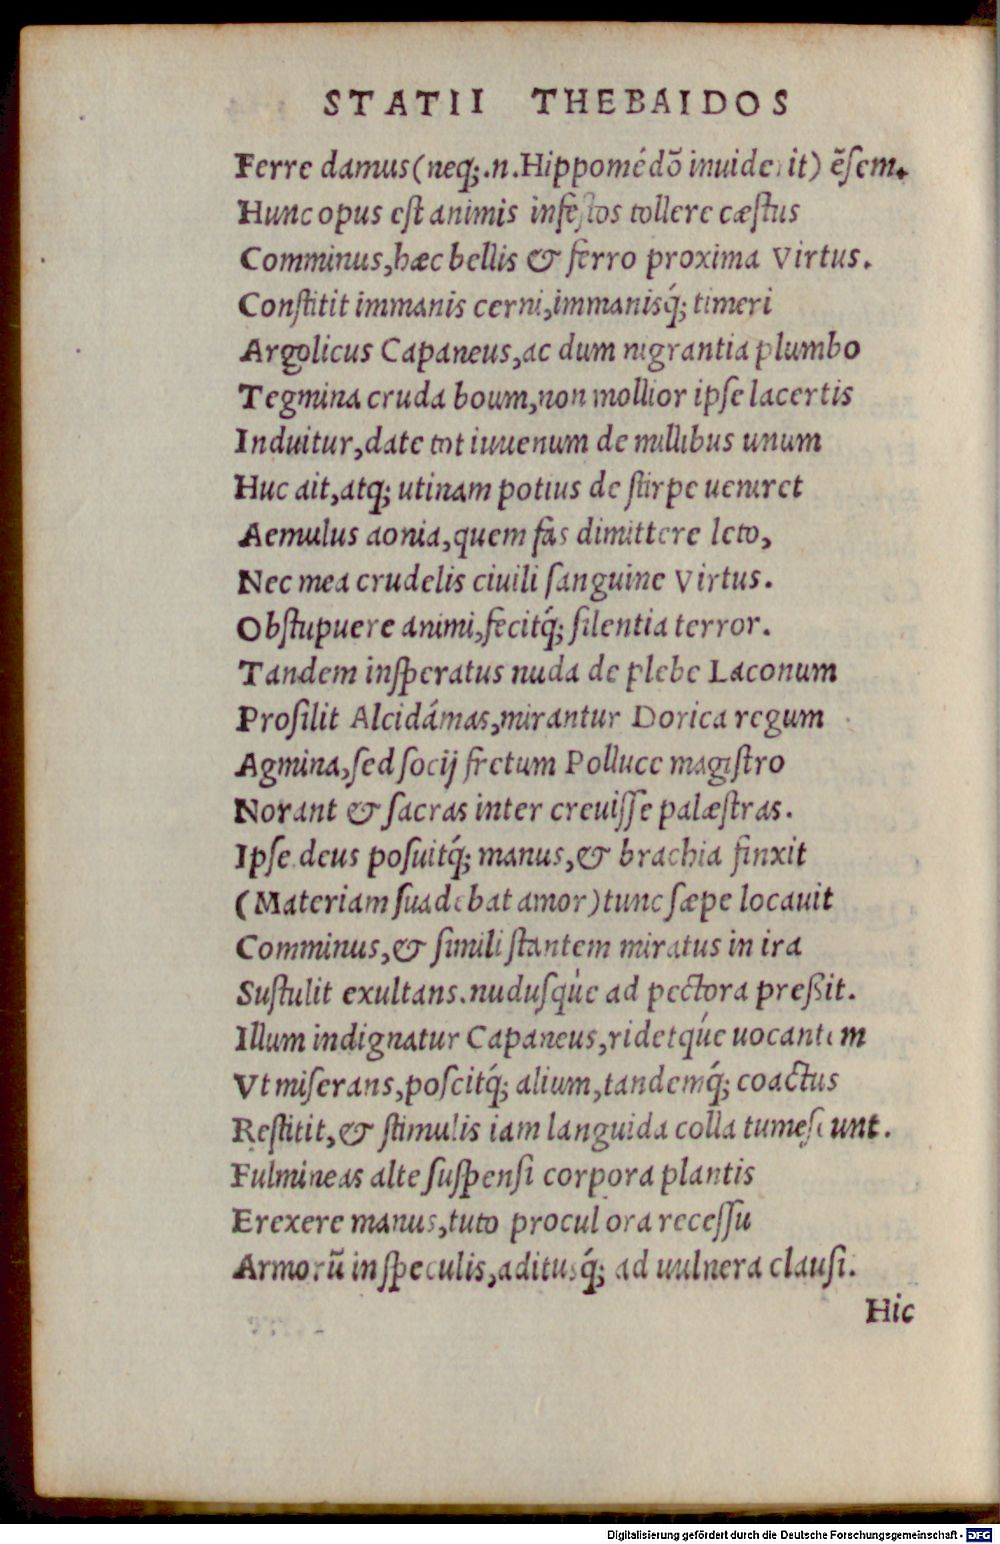 STATII THEBAIDOS
Ferre damus(neq;.n.Hippomédõ inuiderit) ẽsem.
Hunc opus est animis infestos tollere cæstus
Comminus,hæc bellis & ferro proxima Virtus.
Constitit immanis cerni,immanisq́; timeri
Argolicus Capaneus,ac dum nigrantia plumbo
Tegmina cruda boum,non mollior ipse lacertis
Induitur,date tot iuuenum de millibus unum
Huc ait,atq; utinam potius de stirpe ueniret
Aemulus aonia,quem fas dimittere leto,
Nec mea crudelis ciuili sanguine Virtus.
Obstupuere animi,fecitq́; silentia terror.
Tandem insperatus nuda de plebe Laconum
Prosilit Alcidámas,mirantur Dorica regum
Agmina,sed socij fretum Polluce magistro
Norant & sacras inter creuisse palæstras.
Ipse deus posuitq́; manus,& brachia finxit
(Materiam suadebat amor)tunc sæpe locauit
Comminus,& simili stantem miratus in ira
Sustulit exultans.nudusqúe ad pectora preßit.
Illum indignatur Capaneus,ridetqúe uocantem
Vt miserans,poscitq́; alium,tandemq́; coactus
Restitit,& stimulis iam languida colla tumescunt.
Fulmineas alte suspensi corpora plantis
Erexere manus,tuto procul ora recessu
Armorũ in speculis,aditusq́; ad uulnera clausi.
Hic
Digitalisierung gefördert durch die Deutsche Forschungsgemeinschaft - DFG